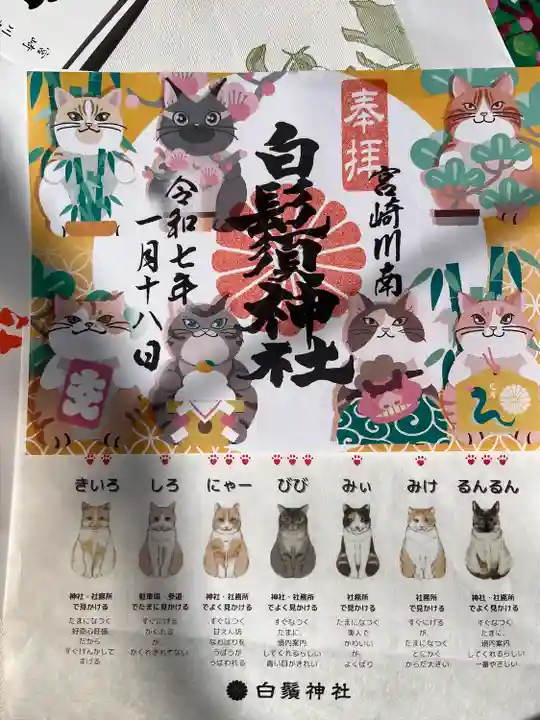 奉拝
宮崎川南
白髭須神社
令和七年
一月十八日
きいろ
神社・社務所
で見かける
たまになつく
好奇心旺盛
だから
すぐけんかして
まける
しろ
駐車場・参道
でたまに見かける
すぐにげる
かくれる
が
かくれきれてない
にゃー
神社・社務所
でよく見かける
すぐなつく
甘えん坊
なわばりも
うばうが
うばわれる
びび
神社・社務所
でよく見かける
すぐなつく
たまに、
境内案内
してくれるらしい
青い目がきれい
みぃ
社務所
で見かける
たまになつく
美人で
かわいい
が
よくばり
みけ
社務所
で見かける
すぐにげる
が、
たまになつく
とにかく
からだ大きい
るんるん
神社・社務所
でよく見かける
すぐなつく
たまに、
境内案内
してくれるらしい
一番やさしい
白鬚神社